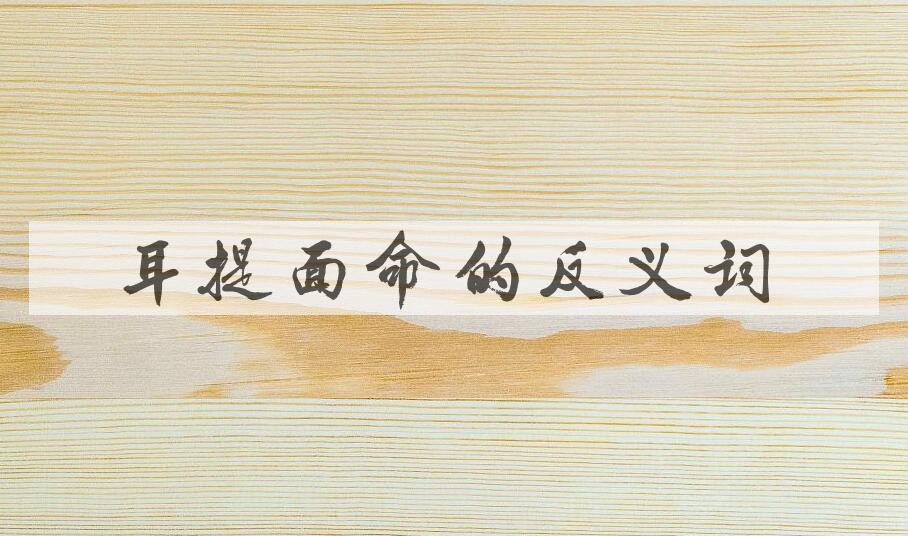 耳提面命的反义词